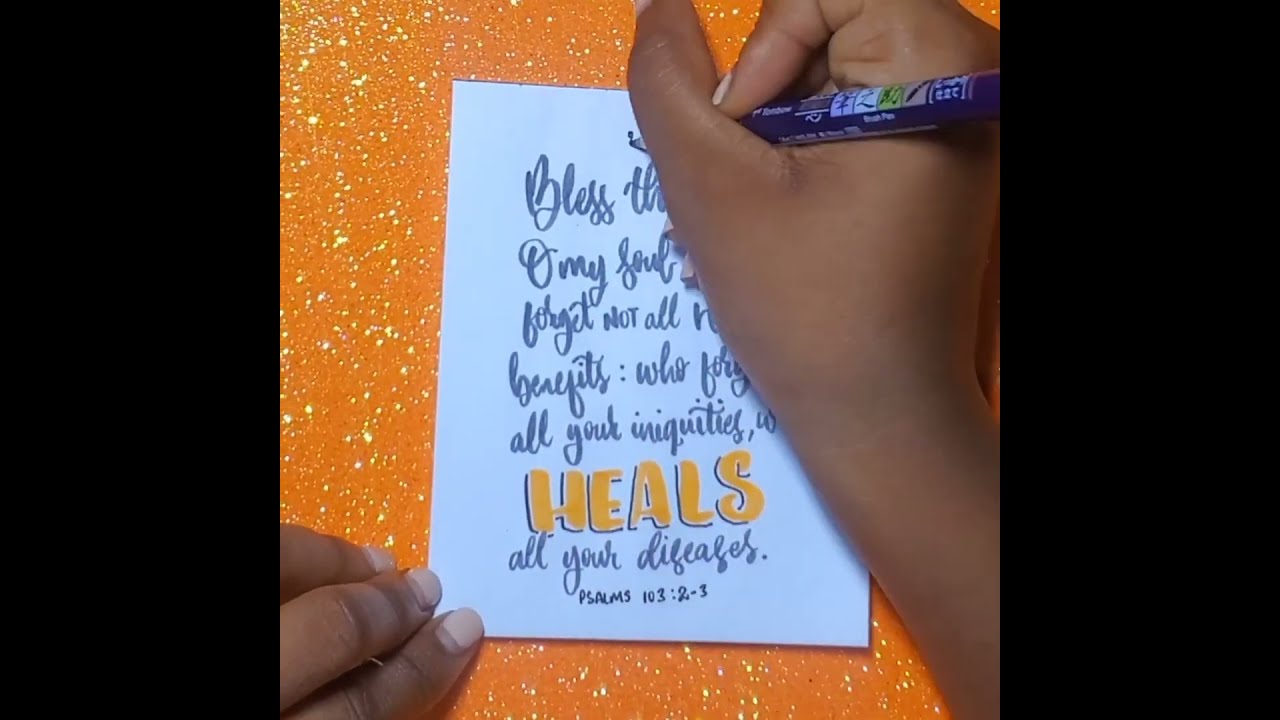 Bless
O my soul
forget NOT all
benefits: who
all your iniquities,
HEALS
all your diseases.
PSALMS 103:2-3
Tombow
Brush Pen